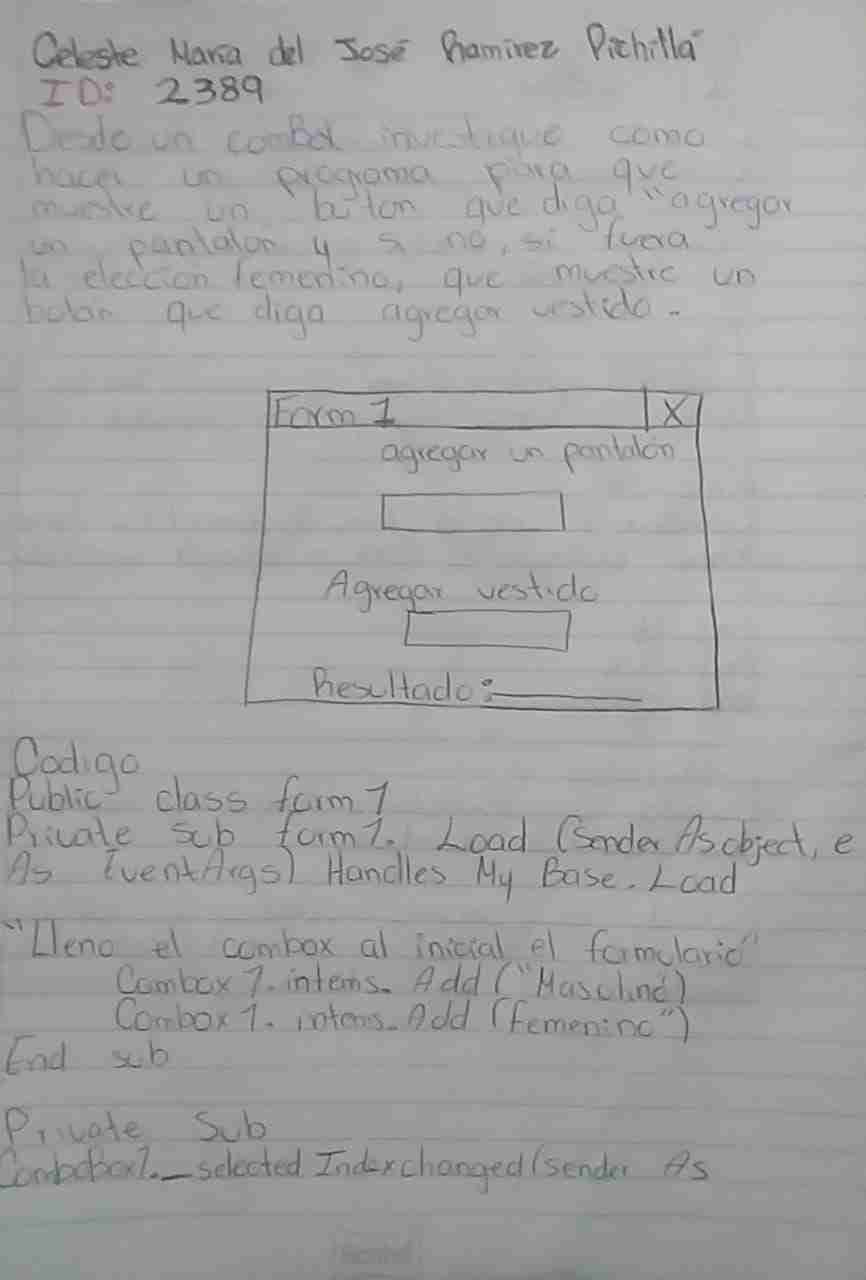 Celeste Maria del José Ramirez Pichilla
ID: 2389
Desde un combox investigue como
hacer un programa para que
muestre un boton que diga "agregar
un pantalon y si no, si fuera
la eleccion femenino, que muestre un
boton que diga agregar vestido.
Form 1 X
agregar un pantalón
Agregar vestido
Resultado:
Codigo
Public class form 1
Private sub form 1. Load (Sender As object, e
As EventArgs) Handles My Base. Load
"Lleno el combox al inicial el formulario"
Combox 1. intems. Add ("Masculino)
Combox 1. intems. Add (femenino")
End sub
Private Sub
ComboBox1._selected Indexchanged (sender As